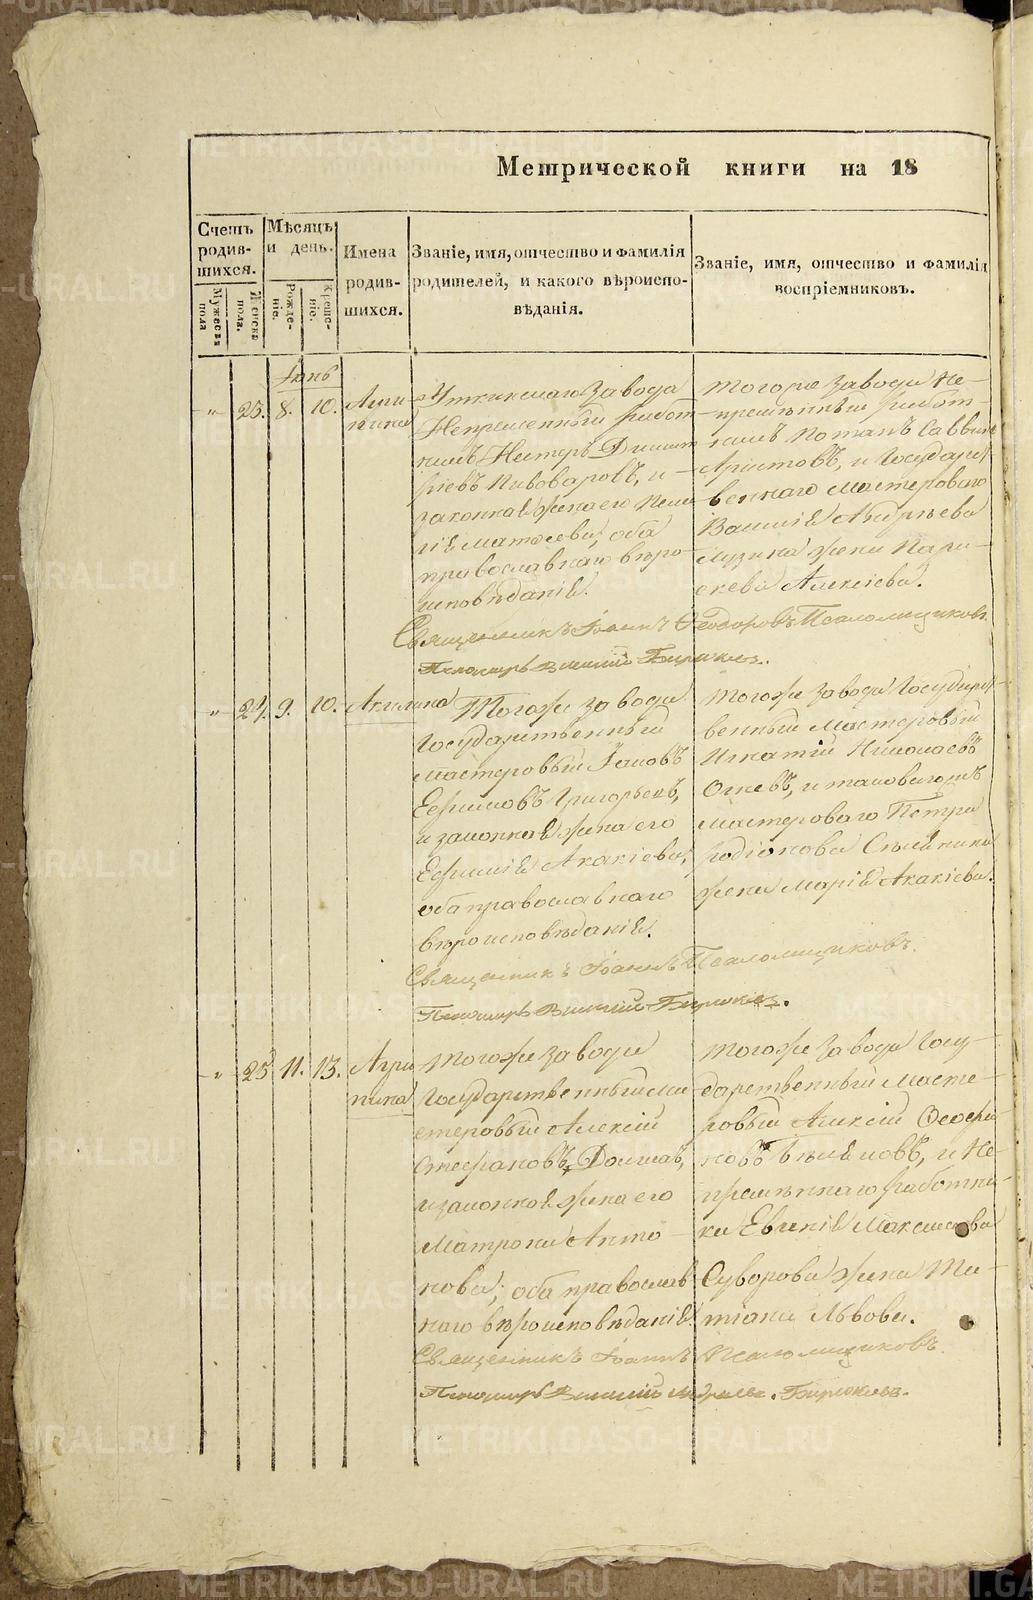 Метрической книги на 18
Счетъ родив- шихся.
Мужеска пола
Женска пола.
Мѣсяцъ и день.
Рожде- ніе.
Креще- ніе.
Имена родив- шихся.
Званіе, имя, отчество и фамилія родителей, и какого вѣроиспо- вѣданія.
Званіе, имя, отчество и фамилія воспріемниковъ.
Іюнь
„ 23. 8. 10. Агри-
пина
Уткинскаго завода
Непремѣнный работ-
никъ Нестеръ Димит
ріевъ Пивоваровъ, и
законная жена его Пела
гія Матѳеева; оба
православнаго вѣро-
исповѣданія.
тогоже завода Не-
премѣнный работ-
никъ Потапъ Саввинъ
Аристовъ, и Государст
веннаго мастероваго
Василія Андреева
жена Пара-
скева Алексіева.
Священникъ Іоаннъ Ѳеодоровъ Псаломщиковъ.
Пономарь Василій Бирюковъ.
„ 24. 9. 10. Акилина
Тогоже завода
Государственный
мастеровый Іаковъ
Ефимовъ Григорьевъ,
и законная жена его
Ефимія Акакіева;
оба православнаго
вѣроисповѣданія.
тогоже завода Государст
венный мастеровый
Игнатій Николаевъ
Огневъ, и таковагожъ
мастероваго Петра
Родіонова
жена Марія Акакіева.
Священникъ Іоаннъ Псаломщиковъ.
Пономарь Василій Бирюковъ.
„ 25 11. 13. Агри
пина
тогоже завода
Государственный ма
стеровый Алексій
Стефановъ
и законная жена его
Матрона Анто-
нова; оба православ
наго вѣроисповѣданія.
тогоже завода Госу-
дарственный масте-
ровый Алексій
и Не-
премѣннаго работни-
ка Евгенія Максимова
Суворова жена Та-
тіана Львова.
Священникъ Іоаннъ Псаломщиковъ.
Пономарь Василій Бирюковъ.
METRIKI.GASO-URAL.RU